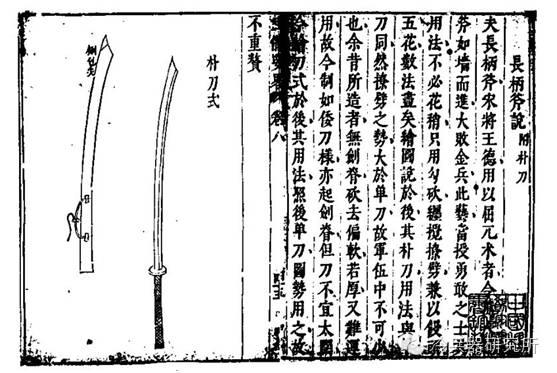 長柄斧說 附朴刀
夫長柄斧宋將王德用以兀术者令
斧如墻而進大敗金兵此藝當授勇敢之士其
用法不必花稍只用勾砍纏攪撩劈兼以侵
五花數法盡矣繪圖說於後其朴刀用法與
刀同然撩劈之勢大於单刀故軍伍中不可少
也余昔所造者無劍脊砍去偏軟若厚又難運
用故今制如倭刀樣亦起劍脊但刀不宜太闊
今繪刀式於後其用法照後单刀圖勢用之故
卷八
不重贅
朴刀式
兵器研究所